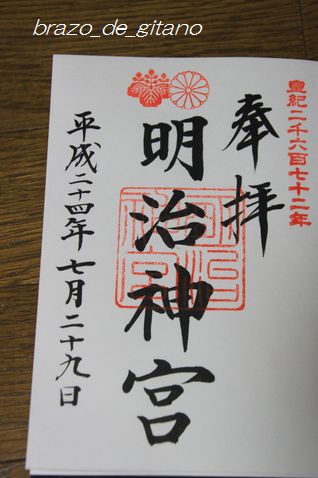 brazo_de_gitano
皇紀二千六百七十二年
奉拝
明治神宮
平成二十四年七月二十九日